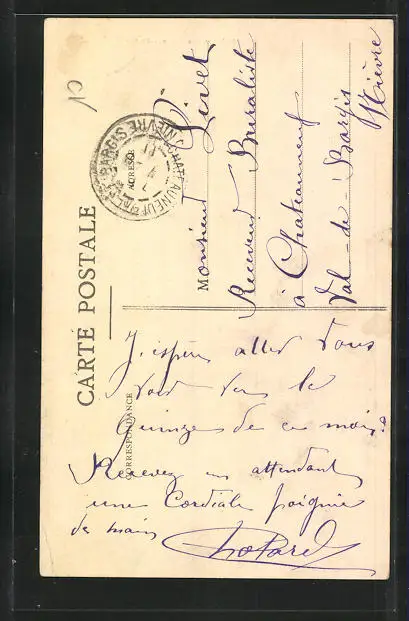 CARTE POSTALE
CORRESPONDANCE
ADRESSE
CHATEAUNEUF-VAL-DE-BARGIS NIEVRE
Monsieur Livet
Receveur Buraliste
à Chateauneuf
Val-de-Bargis
Nièvre
J'espère aller vous
voir vers le
Quinze de ce mois.
Recevez en attendant
une Cordiale poignée
de main